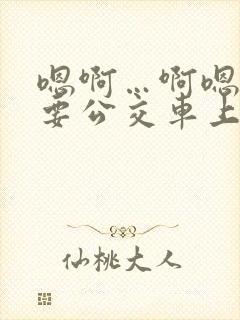 嗯啊…啊嗯
要公交车上
仙桃大人